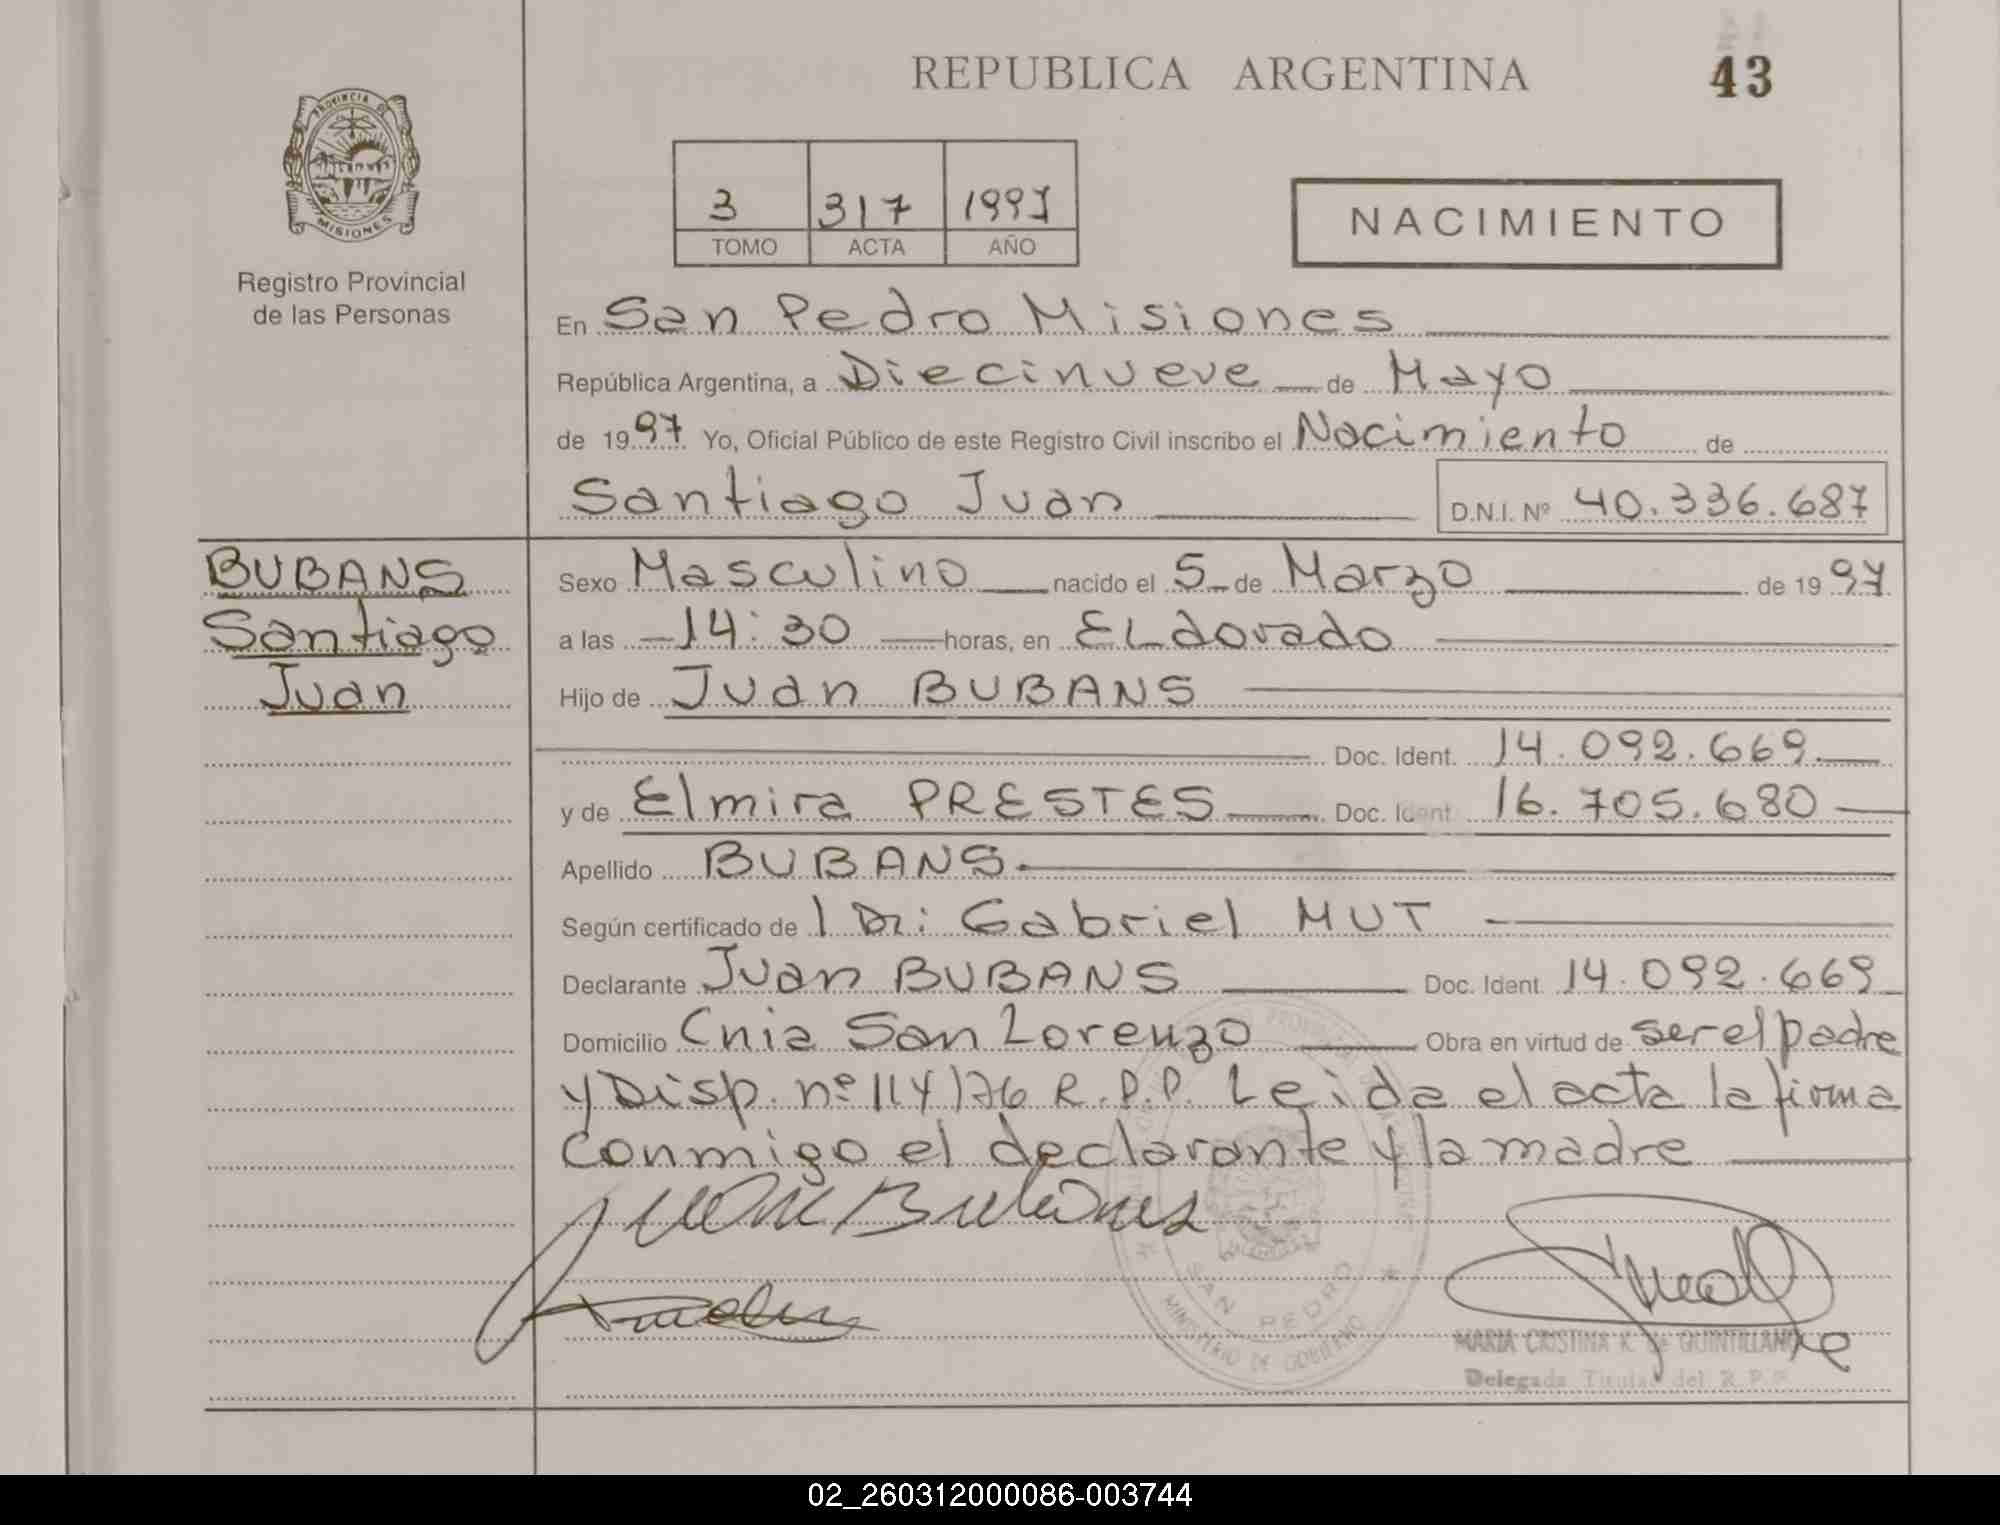 REPUBLICA ARGENTINA
43
PROVINCIA DE
MISIONES
Registro Provincial
de las Personas
3 317 1997
TOMO ACTA AÑO
NACIMIENTO
En San Pedro Misiones
República Argentina, a Diecinueve de Mayo
de 1997. Yo, Oficial Público de este Registro Civil inscribo el Nacimiento de
Santiago Juan D.N.I. Nº 40.336.687
BUBANS
Santiago
Juan
Sexo Masculino nacido el 5 de Marzo de 1997
a las 14:30 horas, en ELdorado
Hijo de Juan BUBANS
Doc. Ident. 14.092.669.
y de Elmira PRESTES Doc. Ident 16.705.680
Apellido BUBANS.
Según certificado de Gabriel MUT
Declarante Juan BUBANS Doc. Ident 14.092.669
Domicilio Cnia San Lorenzo Obra en virtud de ser el padre
y Disp. nº 114/76 R.P.P. Leida el acta la firma
conmigo el declarante y la madre
Juan Bubans
SAN PEDRO
MINISTERIO DE GOBIERNO
MARIA CRISTINA K. de QUINTILLAN
Delegada Titular del R.P.P.
02_260312000086-003744